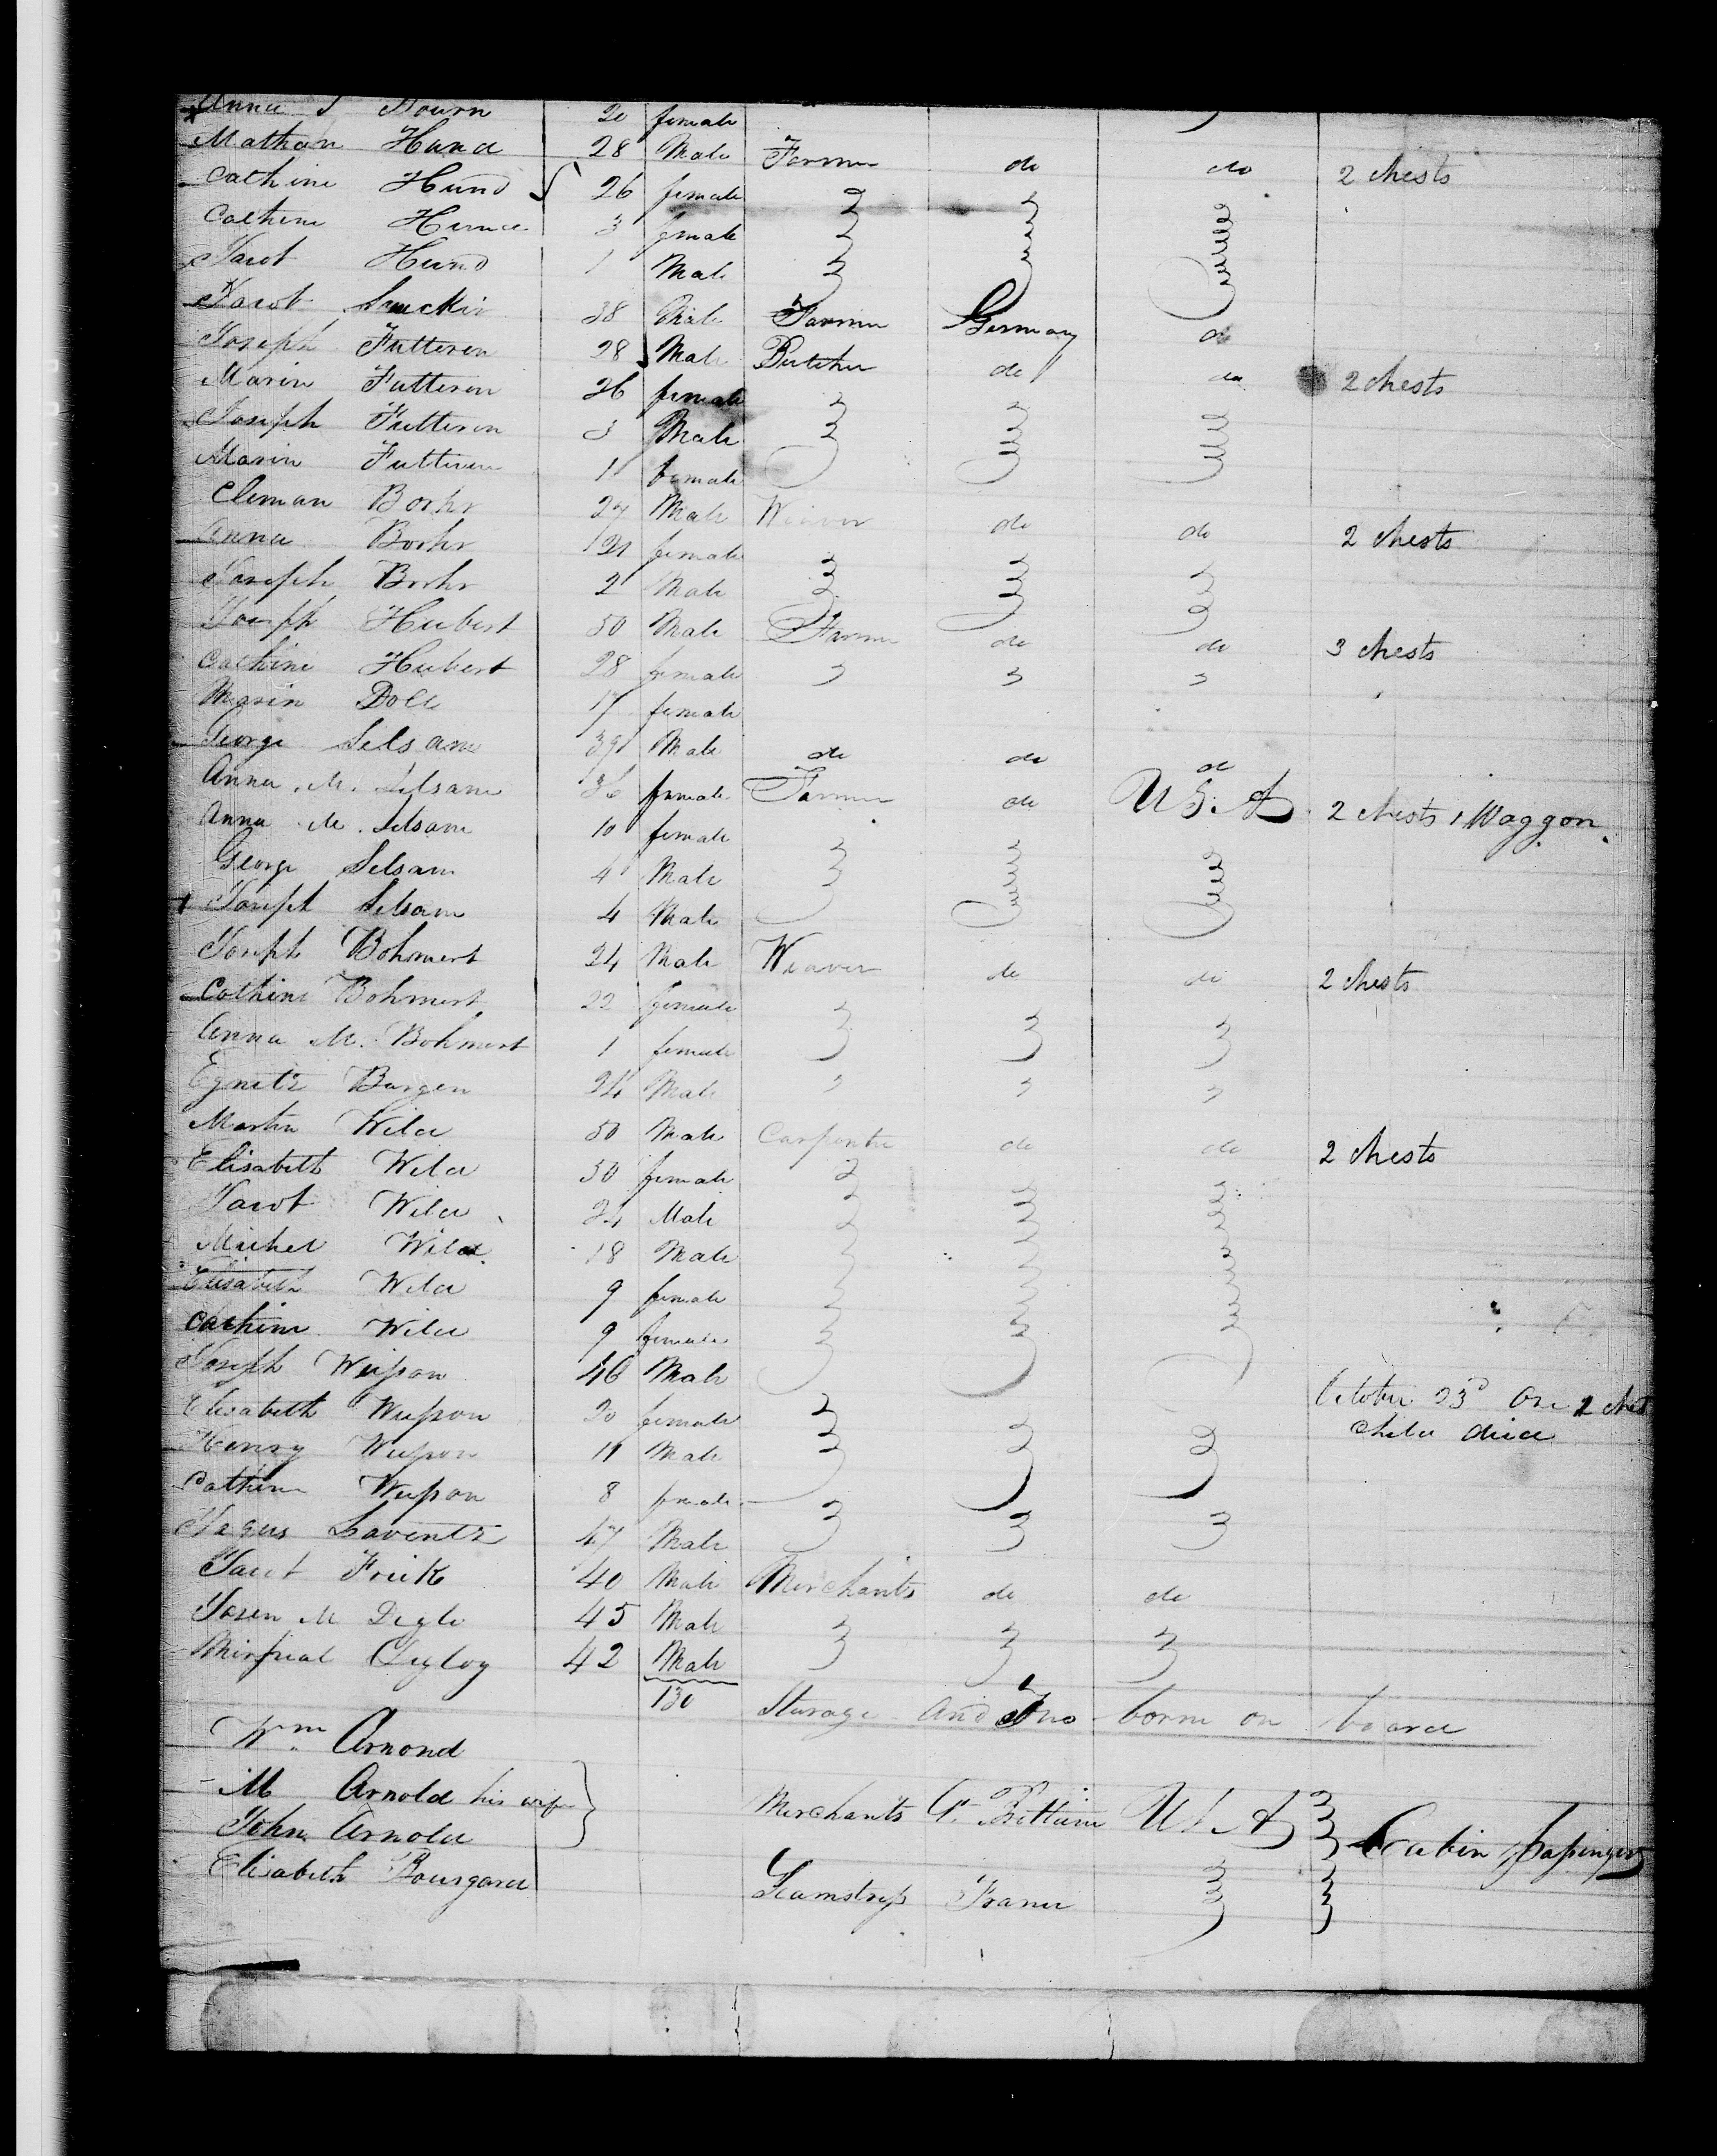 Anna S Nourn 20 female
Mathan Hund 28 Male Farmer do do 2 Chests
Cathine Hund 26 female
Cathine Hund 3 female
Jacob Hund 1 Male
Jacob 38 Male Farmer Germany do
Joseph Futteren 28 Male Butcher do do 2 Chests
Marin Futteren 26 female
Joseph Futteren 3 Male
Marin Futteren 1 female
Cleman Borhr 27 Male Weaver do do 2 Chests
Anna Borhr 21 female
Joseph Borhr 2 Male
Joseph Hubert 30 Male Farmer do do 3 Chests
Cathine Hubert 28 female
Marin Doll 17 female
George Selsam 39 Male do do do
Anna M. Selsam 36 female Farmer do U S. A 2 Chests 1 Waggon
Anna M. Selsam 10 female
George Selsam 4 Male
Joseph Selsam 4 Male
Joseph Bohmert 24 Male Weaver do do 2 Chests
Cathine Bohmert 22 female
Anna M. Bohmert 1 female
Egnetz Bargen 24 Male
Martin Wild 50 Male Carpenter do do 2 Chests
Elisabeth Wild 50 female
Jacob Wild 24 Male
Michel Wild 18 Male
Elisabeth Wild 9 female
Cathine Wild 9 female
Joseph Weipon 46 Male
Elisabeth Weipon 20 female October 23d One 2 Chest
Henry Weipon 11 Male Child died
Cathine Weipon 8 female
Jaques Laventz 47 Male
Jacob Frick 40 Male Merchants do do
M Degle 45 Male
42 Male
130 Sturage and One born on board
Wm Arnond
M Arnold his wife
John Arnold Merchants Gt Brittain U S. A Cabin passingers
Elisabeth Bourgard Seamstress France